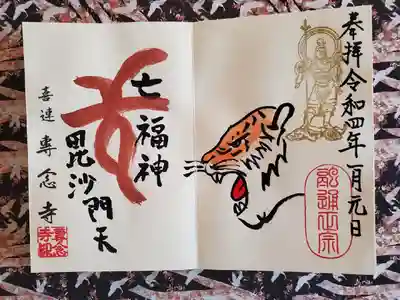 奉拝令和四年一月元日
融通正宗
七福神
毘沙門天
喜連專念寺